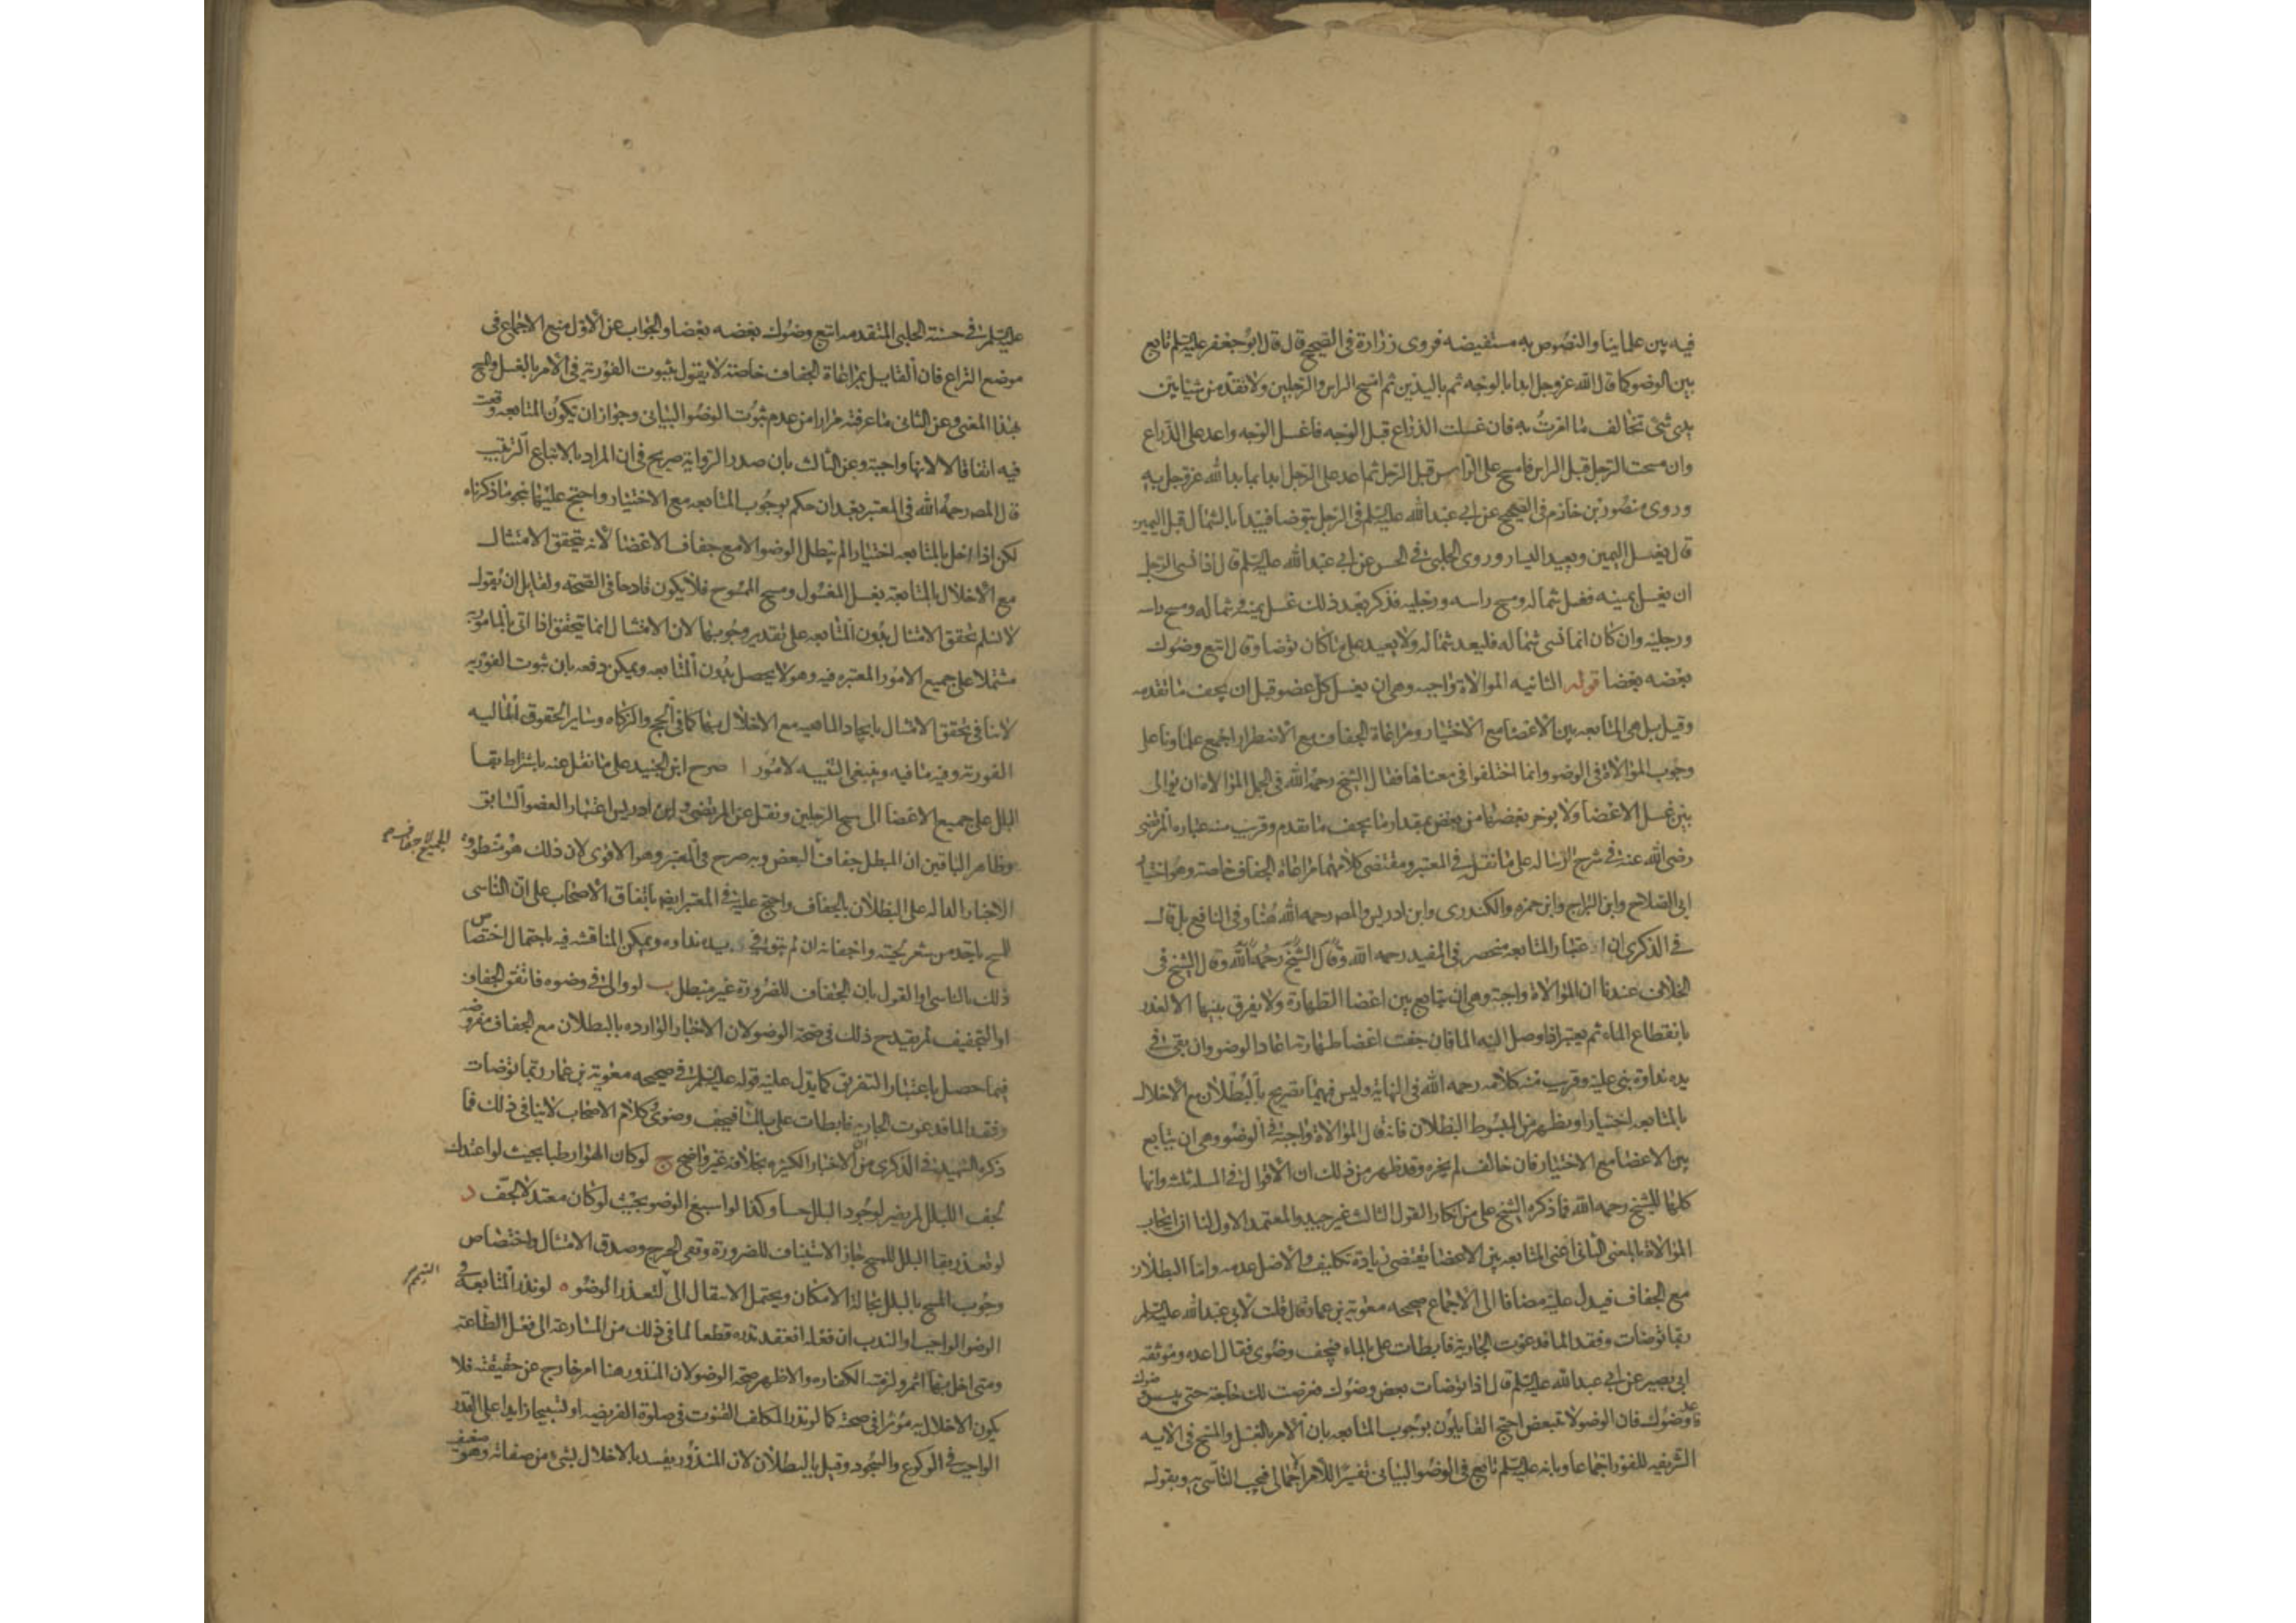 فيه بين علماينا والنصوص به مستفيضه فروى زرارة فى الصحيح قال قال ابو جعفر عليه السلم تابع
بين الوضو كما قال الله عز وجل ابدا بالوجه ثم باليدين ثم امسح الراس والرجلين ولا تقدمن شيئا بين
يدى شئ تخالف ما امرت به فان غسلت الذراع قبل الوجه فاغسل الوجه واعد على الذراع
وان مسحت الرجل قبل الراس فامسح على الراس قبل الرجل ثم اعد على الرجل ابدا بما بدا الله عز وجل به
وروى منصور بن حازم فى الصحيح عن ابى عبد الله عليه السلم فى الرجل يتوضا فيبدا بالشمال قبل اليمين
قال يغسل اليمين ويعيد اليسار وروى الحلبى فى الحسن عن ابى عبد الله عليه السلم قال اذا نسى الرجل
ان يغسل يمينه فغسل شماله ومسح راسه ورجليه فذكر بعد ذلك غسل يمينه وشماله ومسح راسه
ورجليه وان كان انما نسى شماله فليعد شماله ولا يعيد على ما كان توضا وقال اتبع وضوك
بعضه بعضا قوله الثانيه الموالاة واجبه وهى ان يغسل كل عضو قبل ان يجف ما تقدمه
وقيل بل هى المتابعه بين الاعضا مع الاختيار ومراعاة الجفاف مع الاضطرار اجمع علماونا على
وجوب الموالاة فى الوضو وانما اختلفوا فى معناها فقال الشيخ رحمه الله فى الجمل الموالاة ان يوالى
بين غسل الاعضا ولا يوخر بعضها من بعض بمقدار ما يجف ما تقدم وقريب منه عباره المرتضى
رضى الله عنه فى شرح الرساله على ما نقل فى المعتبر ومقتضى كلامهما مراعاة الجفاف خاصة وهو اختيار
ابى الصلاح وابن البراج وابن حمزه والكندرى وابن ادريس والمصر رحمه الله هنا وفى النافع بل قال
فى الذكرى ان اعتبار المتابعه منحصر فى المفيد رحمه الله وقال الشيخ رحمه الله وقال الشيخ فى
الخلاف عندنا ان الموالاة واجبة وهى ان يتابع بين اعضا الطهارة ولا يفرق بينها الا لعذر
بانقطاع الماء ثم يعتبر اذا وصل اليه الما فان جفت اعضا طهارته اعاد الوضو وان بقى فى
يده نداوة بنى عليه وقريب منه كلامه رحمه الله فى النهاية وليس فيهما تصريح بالبطلان مع الاخلال
بالمتابعه اختيارا ويظهر من المبسوط البطلان فانه قال الموالاة واجبة فى الوضو وهى ان يتابع
بين الاعضا مع الاختيار فان خالف لم يجزه وقد ظهر من ذلك ان الاقوال فى المسله ثلثه وانها
كلها للشيخ رحمه الله فما ذكره الشيخ على من انكار القول الثالث غير جيد والمعتمد الاول لنا ان ايجاب
الموالاة بالمعنى الثانى اعنى المتابعه بين الاعضا يقتضى زيادة تكليف والاصل عدمه واما البطلان
مع الجفاف فيدل عليه مضافا الى الاجماع صحيحه معوية بن عمار قال قلت لابى عبد الله عليه السلم
ربما توضات ونفد الما فدعوت الجارية فابطات على بالماء فيجف وضوى فقال اعده وموثقه
ابى بصير عن ابى عبد الله عليه السلم قال اذا توضات بعض وضوك فعرضت لك حاجة حتى ييبس وضوك
فاعد وضوك فان الوضو لا تبعض احتج القايلون بوجوب المتابعه بان الامر بالغسل والمسح فى الايه
الشريفه للفور اجماعا وبانه عليه السلم تابع فى الوضو البيانى تفسيرا للامر الاجمالى فيجب التاسى به وبقوله
عليه السلم فى حسنة الحلبى المتقدمه اتبع وضوك بعضه بعضا والجواب عن الاول منع الاجماع فى
موضع النزاع فان القايل بمراعاة الجفاف خاصة لا يقول بثبوت الفورية فى الامر بالغسل والمسح
بهذا المعنى وعن الثانى ما عرفته مرارا من عدم ثبوت الوضو البيانى وجواز ان تكون المتابعه وقعت
فيه اتفاقا لا لانها واجبة وعن الثالث بان صدر الرواية صريح فى ان المراد بالاتباع الترتيب
قال المصر رحمه الله فى المعتبر بعد ان حكم بوجوب المتابعه مع الاختيار واحتج عليها بنحو ما ذكرناه
لكن اذا اخل بالمتابعه اختيارا لم يبطل الوضو الا مع جفاف الاعضا لانه يتحقق الامتثال
مع الاخلال بالمتابعة بغسل المغسول ومسح الممسوح فلا يكون قادحا فى الصحة ولقايل ان يقول
لا نسلم تحقق الامتثال بدون المتابعه على تقدير وجوبها لان الامتثال انما يتحقق اذا اتى بالمامور به
مشتملا على جميع الامور المعتبره فيه وهو لا يحصل بدون المتابعه ويمكن دفعه بان ثبوت الفوريه
لا ينافى تحقق الامتثال بايجاد الماهيه مع الاخلال بها كما فى الحج والزكاه وساير الحقوق الماليه
الفورية وفيه ما فيه وينبغى التنبيه لامور ا صرح ابن الجنيد على ما نقل عنه باشتراط بقا
البلل على جميع الاعضا الى مسح الرجلين ونقل عن المرتضى وابن ادريس اعتبار العضو السابق
وظاهر الباقين ان المبطل جفاف البعض وبه صرح فى المعتبر وهو الاقوى لان ذلك هو منطوق
الجميع لا جفاف
الاخبار الداله على البطلان بالجفاف واحتج عليه فى المعتبر ايضا باتفاق الاصحاب على ان الناسى
للمسح ياخذ من شعر لحيته واجفانه ان لم يبق فى يده نداوه ويمكن المناقشه فيه باحتمال اختصاص
ذلك بالناسى او القول بان الجفاف للضرورة غير مبطل ب لو والى فى وضوه فاتفق الجفاف
او التجفيف لم يقدح ذلك فى صحة الوضو لان الاخبار الوارده بالبطلان مع الجفاف مفروضه
فيما حصل باعتبار التفريق كما يدل عليه قوله عليه السلم فى صحيحه معوية بن عمار ربما توضات
ونفد الما فدعوت الجاريه فابطات على بالما فيجف وضوى وكلام الاصحاب لا ينافى ذلك فما
ذكره الشهيد فى الذكرى من ان الاخبار الكثيره بخلافه غير واضح ج لو كان الهوا رطبا بحيث لو اعتدل
لجف البلل لم يضر لوجود البلل حسا وكذا لو اسبغ الوضو بحيث لو كان معتدلا لجف د
لو تعذر بقا البلل للمسح جاز الاستيناف للضرورة ونفى الحرج وصدق الامتثال واختصاص
وجوب المسح بالبلل بحالة الامكان ويحتمل الانتقال الى لتعذر الوضو ه لو نذر المتابعة فى
التيمم
الوضو الواجب او الندب ان فعله انعقد نذره قطعا لما فى ذلك من المسارعة الى فعل الطاعة
ومتى اخل بها اثم ولزمته الكفاره والاظهر صحة الوضو لان المنذور هنا امر خارج عن حقيقته فلا
يكون الاخلال به موثرا فى صحته كما لو نذر المكلف القنوت فى صلوة الفريضه او تسبيحا زايدا على القدر
الواجب فى الركوع والسجود وقيل بالبطلان لان المنذور يفسد بالاخلال بشئ من صفاته وهو ضعيف